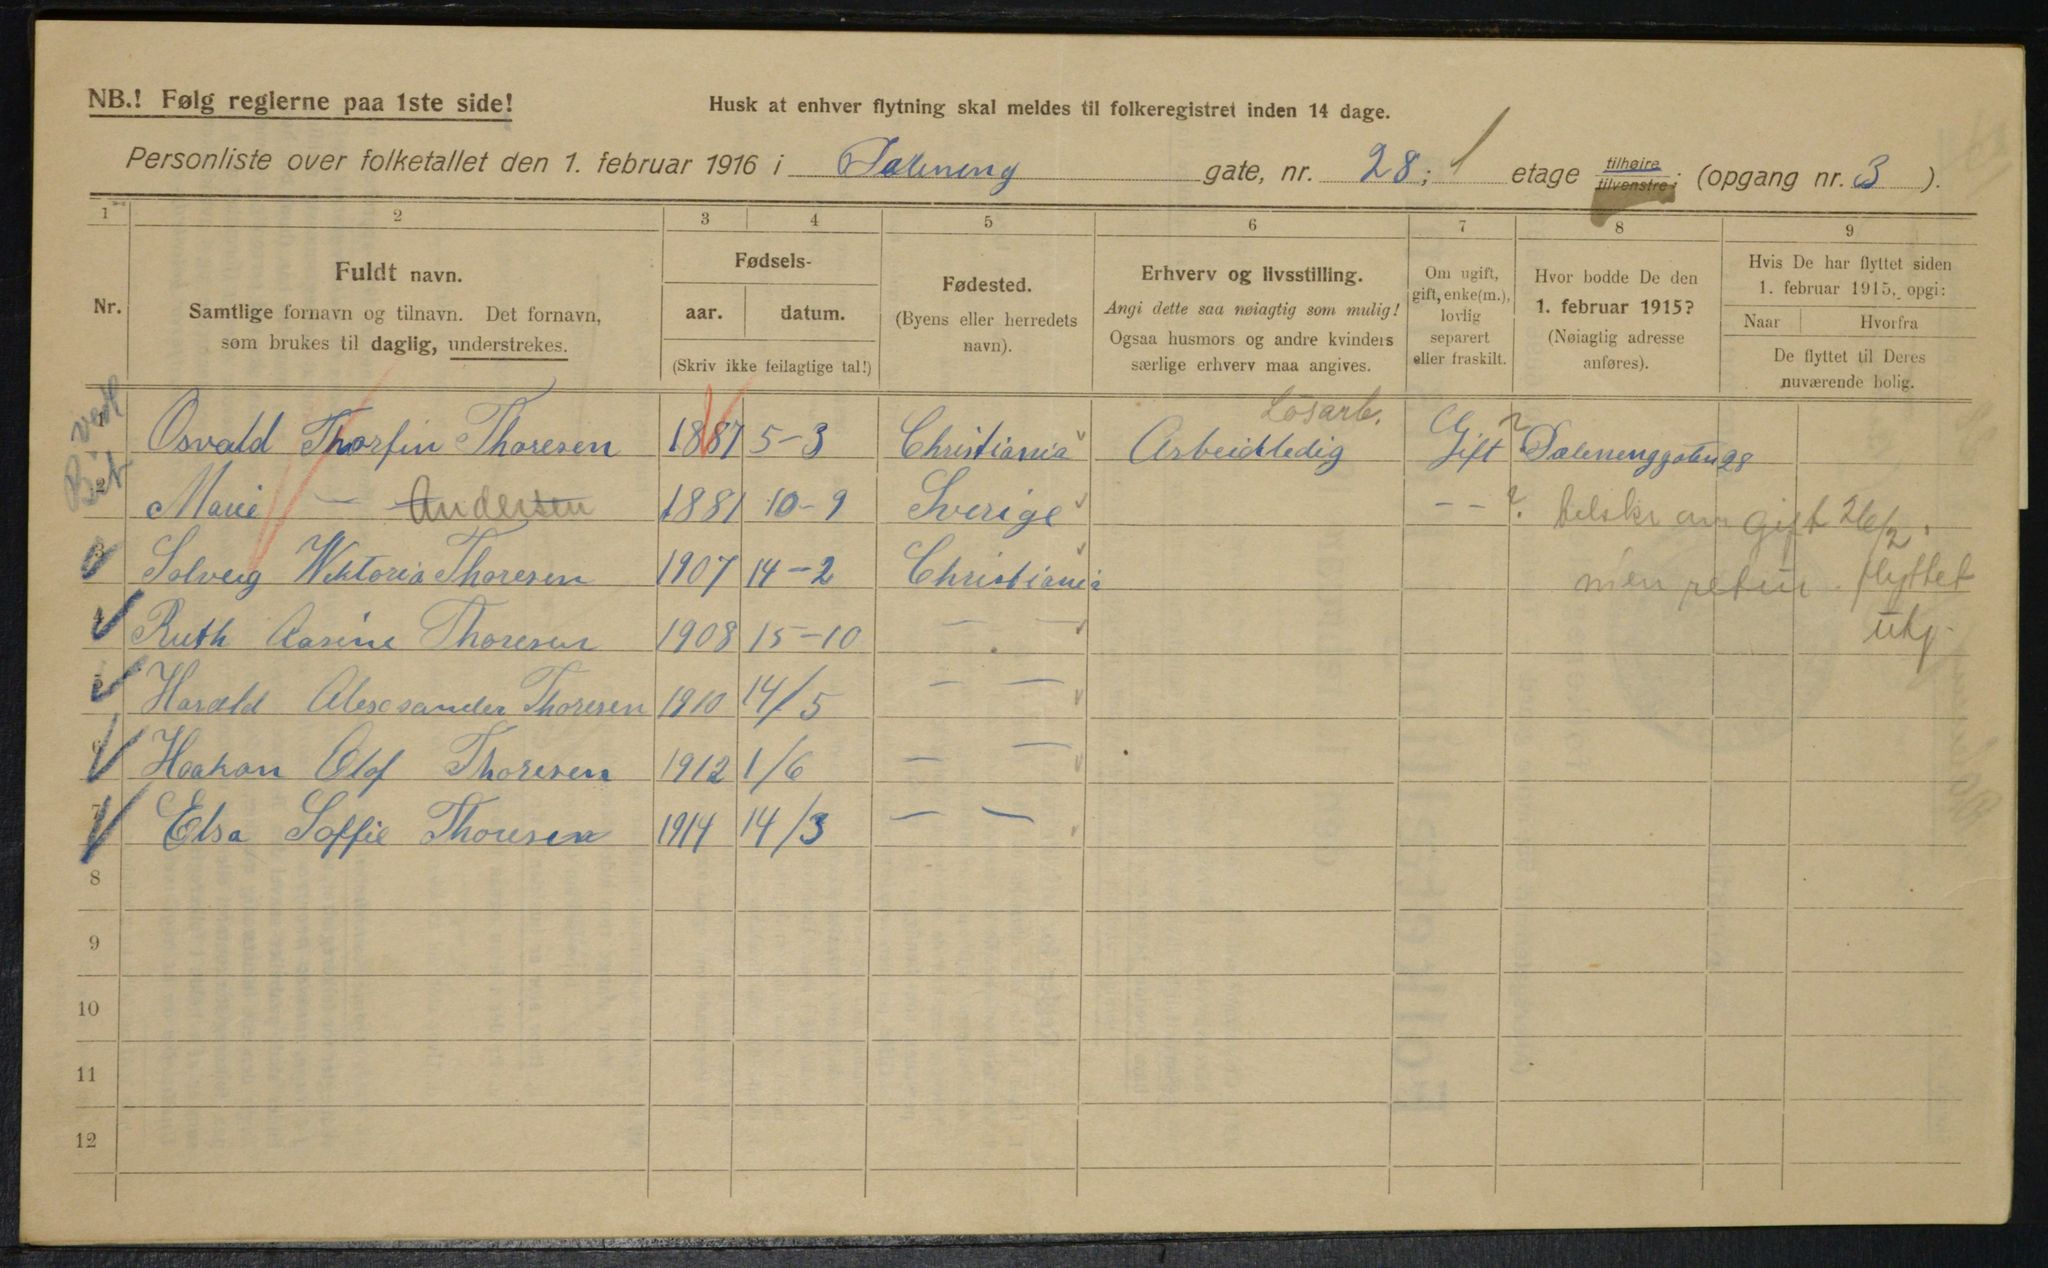 NB.! Følg reglerne paa 1ste side!
Husk at enhver flytning skal meldes til folkeregistret inden 14 dage.
Personliste over folketallet den 1. februar 1916 i Dæleneng gate, nr. 28; 1 etage tilhøire tilvenstre; (opgang nr. 3 ).
1 2 3 4 5 6 7 8 9
Nr.
Fuldt navn.
Samtlige fornavn og tilnavn. Det fornavn,
som brukes til daglig, understrekes.
Fødsels-
aar. datum.
(Skriv ikke feilagtige tal!)
Fødested.
(Byens eller herredets
navn).
Erhverv og livsstilling.
Angi dette saa nøiagtig som mulig!
Ogsaa husmors og andre kvinders
særlige erhverv maa angives.
Om ugift,
gift, enke(m.),
lovlig
separert
eller fraskilt.
Hvor bodde De den
1. februar 1915?
(Nøiagtig adresse
anføres).
Hvis De har flyttet siden
1. februar 1915, opgi:
Naar Hvorfra
De flyttet til Deres
nuværende bolig.
Løsarb.
1 Osvald Thorfin Thoresen 1887 5-3 Christiania Arbeidsledig Gift ? Dælenenggaten 28
2 Marie — Andersen 1881 10-9 Sverige - - ?
Gift 26/2
3 Solveig Viktoria Thoresen 1907 14-2 Christiania
men retur. flyttet
4 Ruth Aasine Thoresen 1908 15-10 — —
5 Harald Alexsander Thoresen 1910 14/5 — —
6 Haakon Olof Thoresen 1912 1/6 — —
7 Elsa Soffie Thoresen 1914 14/3 — —
8
9
10
11
12